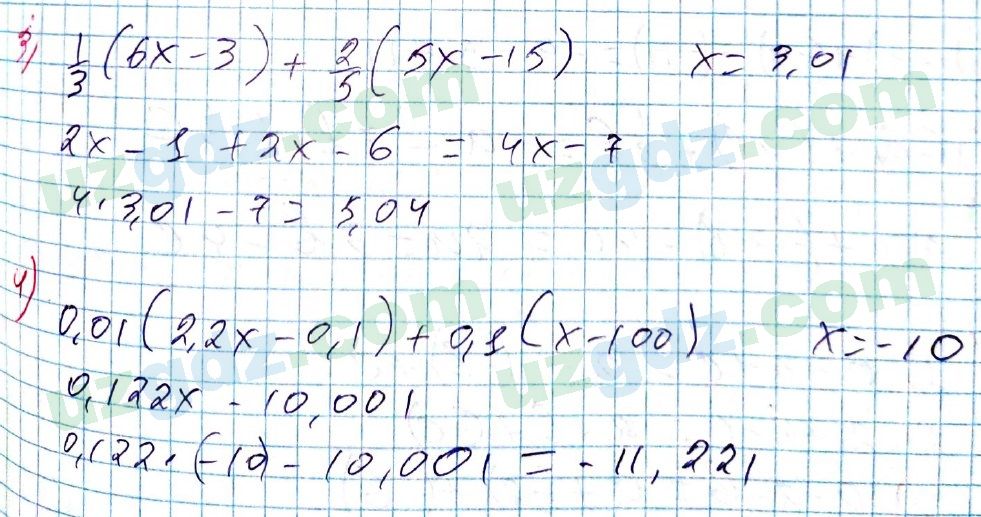 3) 1/3 (6x - 3) + 2/5 (5x - 15) x = 3,01
2x - 1 + 2x - 6 = 4x - 7
4 · 3,01 - 7 = 5,04
4) 0,01 (2,2x - 0,1) + 0,1 (x - 100) x = -10
0,122x - 10,001
0,122 · (-10) - 10,001 = -11,221
uzgdz.com
uzgdz.com
uzgdz.com
uzgdz.com